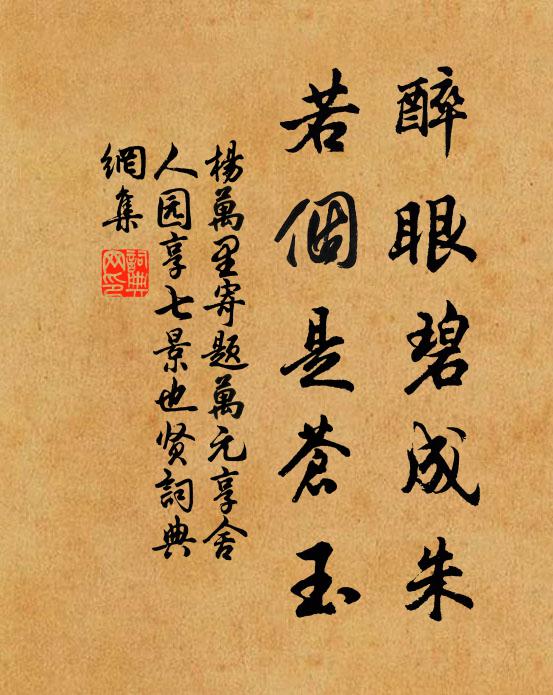 醉眼碧成朱
若個是蒼玉
楊萬里寄題萬元享舍
人园享七景也贤詞典
網集
詞典网印